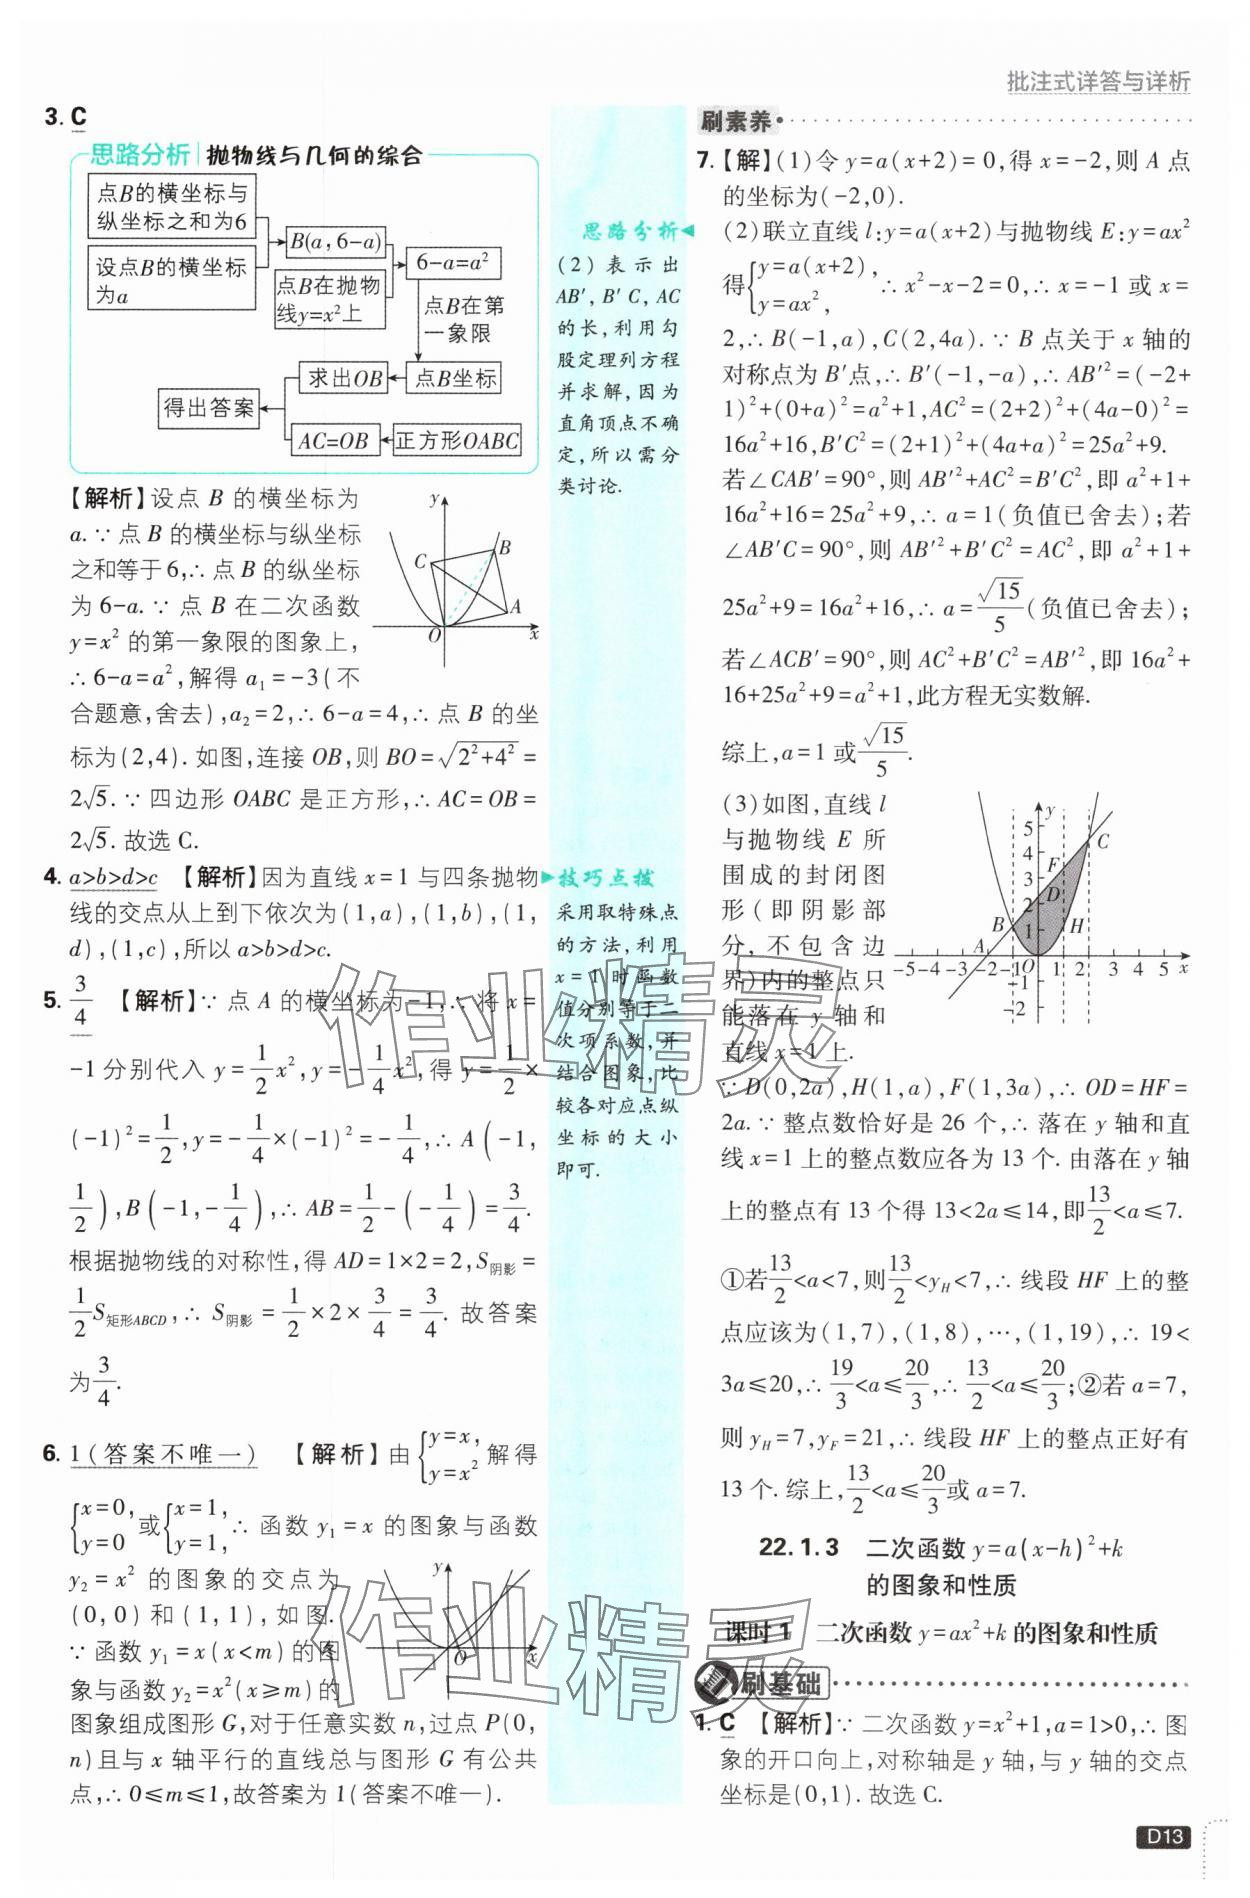 批注式详答与详析
3. C
思路分析 抛物线与几何的综合
点B的横坐标与
纵坐标之和为6
设点B的横坐标
为a
B(a,6-a)
点B在抛物
线y=x²上
6-a=a²
点B在第
一象限
求出OB
点B坐标
得出答案
AC=OB
正方形OABC
【解析】设点 B 的横坐标为
a.∵点 B 的横坐标与纵坐标
之和等于6,∴点 B 的纵坐标
为 6-a.∵ 点 B 在二次函数
y=x² 的第一象限的图象上,
∴6-a=a²,解得 a₁=-3(不
合题意,舍去),a₂=2,∴6-a=4,∴点 B 的坐
标为(2,4). 如图,连接 OB,则 BO=√(2²+4²)=
2√5.∵ 四边形 OABC 是正方形,∴AC=OB=
2√5. 故选 C.
y
C
B
A
O
x
4. a>b>d>c 【解析】因为直线 x=1 与四条抛物
线的交点从上到下依次为(1,a),(1,b),(1,
d),(1,c),所以 a>b>d>c.
5. 3/4 【解析】∵ 点 A 的横坐标为-1,∴ 将 x=
-1 分别代入 y=1/2x²,y=-1/4x²,得 y=1/2×
(-1)²=1/2,y=-1/4×(-1)²=-1/4,∴A(-1,
1/2),B(-1,-1/4),∴AB=1/2-(-1/4)=3/4.
根据抛物线的对称性,得 AD=1×2=2,S阴影=
1/2S矩形ABCD,∴S阴影=1/2×2×3/4=3/4. 故答案
为3/4.
6. 1(答案不唯一) 【解析】由{y=x, y=x²解得
{x=0, y=0或{x=1, y=1,∴ 函数 y₁=x 的图象与函数
y₂=x² 的图象的交点为
(0,0)和(1,1),如图.
∵函数 y₁=x(x<m)的图
象与函数 y₂=x²(x≥m)的
图象组成图形 G,对于任意实数 n,过点 P(0,
n)且与 x 轴平行的直线总与图形 G 有公共
点,∴0≤m≤1,故答案为 1(答案不唯一).
y
O
x
思路分析
(2)表示出
AB',B'C,AC
的长,利用勾
股定理列方程
并求解,因为
直角顶点不确
定,所以需分
类讨论.
技巧点拨
采用取特殊点
的方法,利用
x=1时函数
值分别等于二
次项系数,并
结合图象,比
较各对应点纵
坐标的大小
即可.
刷素养
7.【解】(1)令 y=a(x+2)=0,得 x=-2,则 A 点
的坐标为(-2,0).
(2)联立直线 l:y=a(x+2)与抛物线 E:y=ax²
得{y=a(x+2), y=ax²,∴x²-x-2=0,∴x=-1 或 x=
2,∴B(-1,a),C(2,4a).∵B 点关于 x 轴的
对称点为 B'点,∴B'(-1,-a),∴AB'²=(-2+
1)²+(0+a)²=a²+1,AC²=(2+2)²+(4a-0)²=
16a²+16,B'C²=(2+1)²+(4a+a)²=25a²+9.
若∠CAB'=90°,则 AB'²+AC²=B'C²,即 a²+1+
16a²+16=25a²+9,∴a=1(负值已舍去);若
∠AB'C=90°,则 AB'²+B'C²=AC²,即 a²+1+
25a²+9=16a²+16,∴a=√15/5(负值已舍去);
若∠ACB'=90°,则 AC²+B'C²=AB'²,即 16a²+
16+25a²+9=a²+1,此方程无实数解.
综上,a=1 或√15/5.
(3)如图,直线 l
与抛物线 E 所
围成的封闭图
形(即阴影部
分,不包含边
界)内的整点只
能落在 y 轴和
直线 x=1 上.
y
5
4
3
2
1
F
C
D
B
H
A
O
-5-4-3-2-10 1 2 3 4 5 x
-1
-2
∵D(0,2a),H(1,a),F(1,3a),∴OD=HF=
2a.∵整点数恰好是 26 个,∴落在 y 轴和直
线 x=1 上的整点数应各为 13 个. 由落在 y 轴
上的整点有 13 个得 13<2a≤14,即13/2<a≤7.
①若13/2<a<7,则13/2<yH<7,∴线段 HF 上的整
点应该为(1,7),(1,8),…,(1,19),∴19<
3a≤20,∴19/3<a≤20/3,∴13/2<a≤20/3;②若 a=7,
则 yH=7,yF=21,∴线段 HF 上的整点正好有
13 个. 综上,13/2<a≤20/3或 a=7.
22.1.3 二次函数 y=a(x-h)²+k
的图象和性质
课时1 二次函数 y=ax²+k 的图象和性质
刷基础
1. C 【解析】∵二次函数 y=x²+1,a=1>0,∴图
象的开口向上,对称轴是 y 轴,与 y 轴的交点
坐标是(0,1). 故选 C.
D13
作业精灵
作业精灵